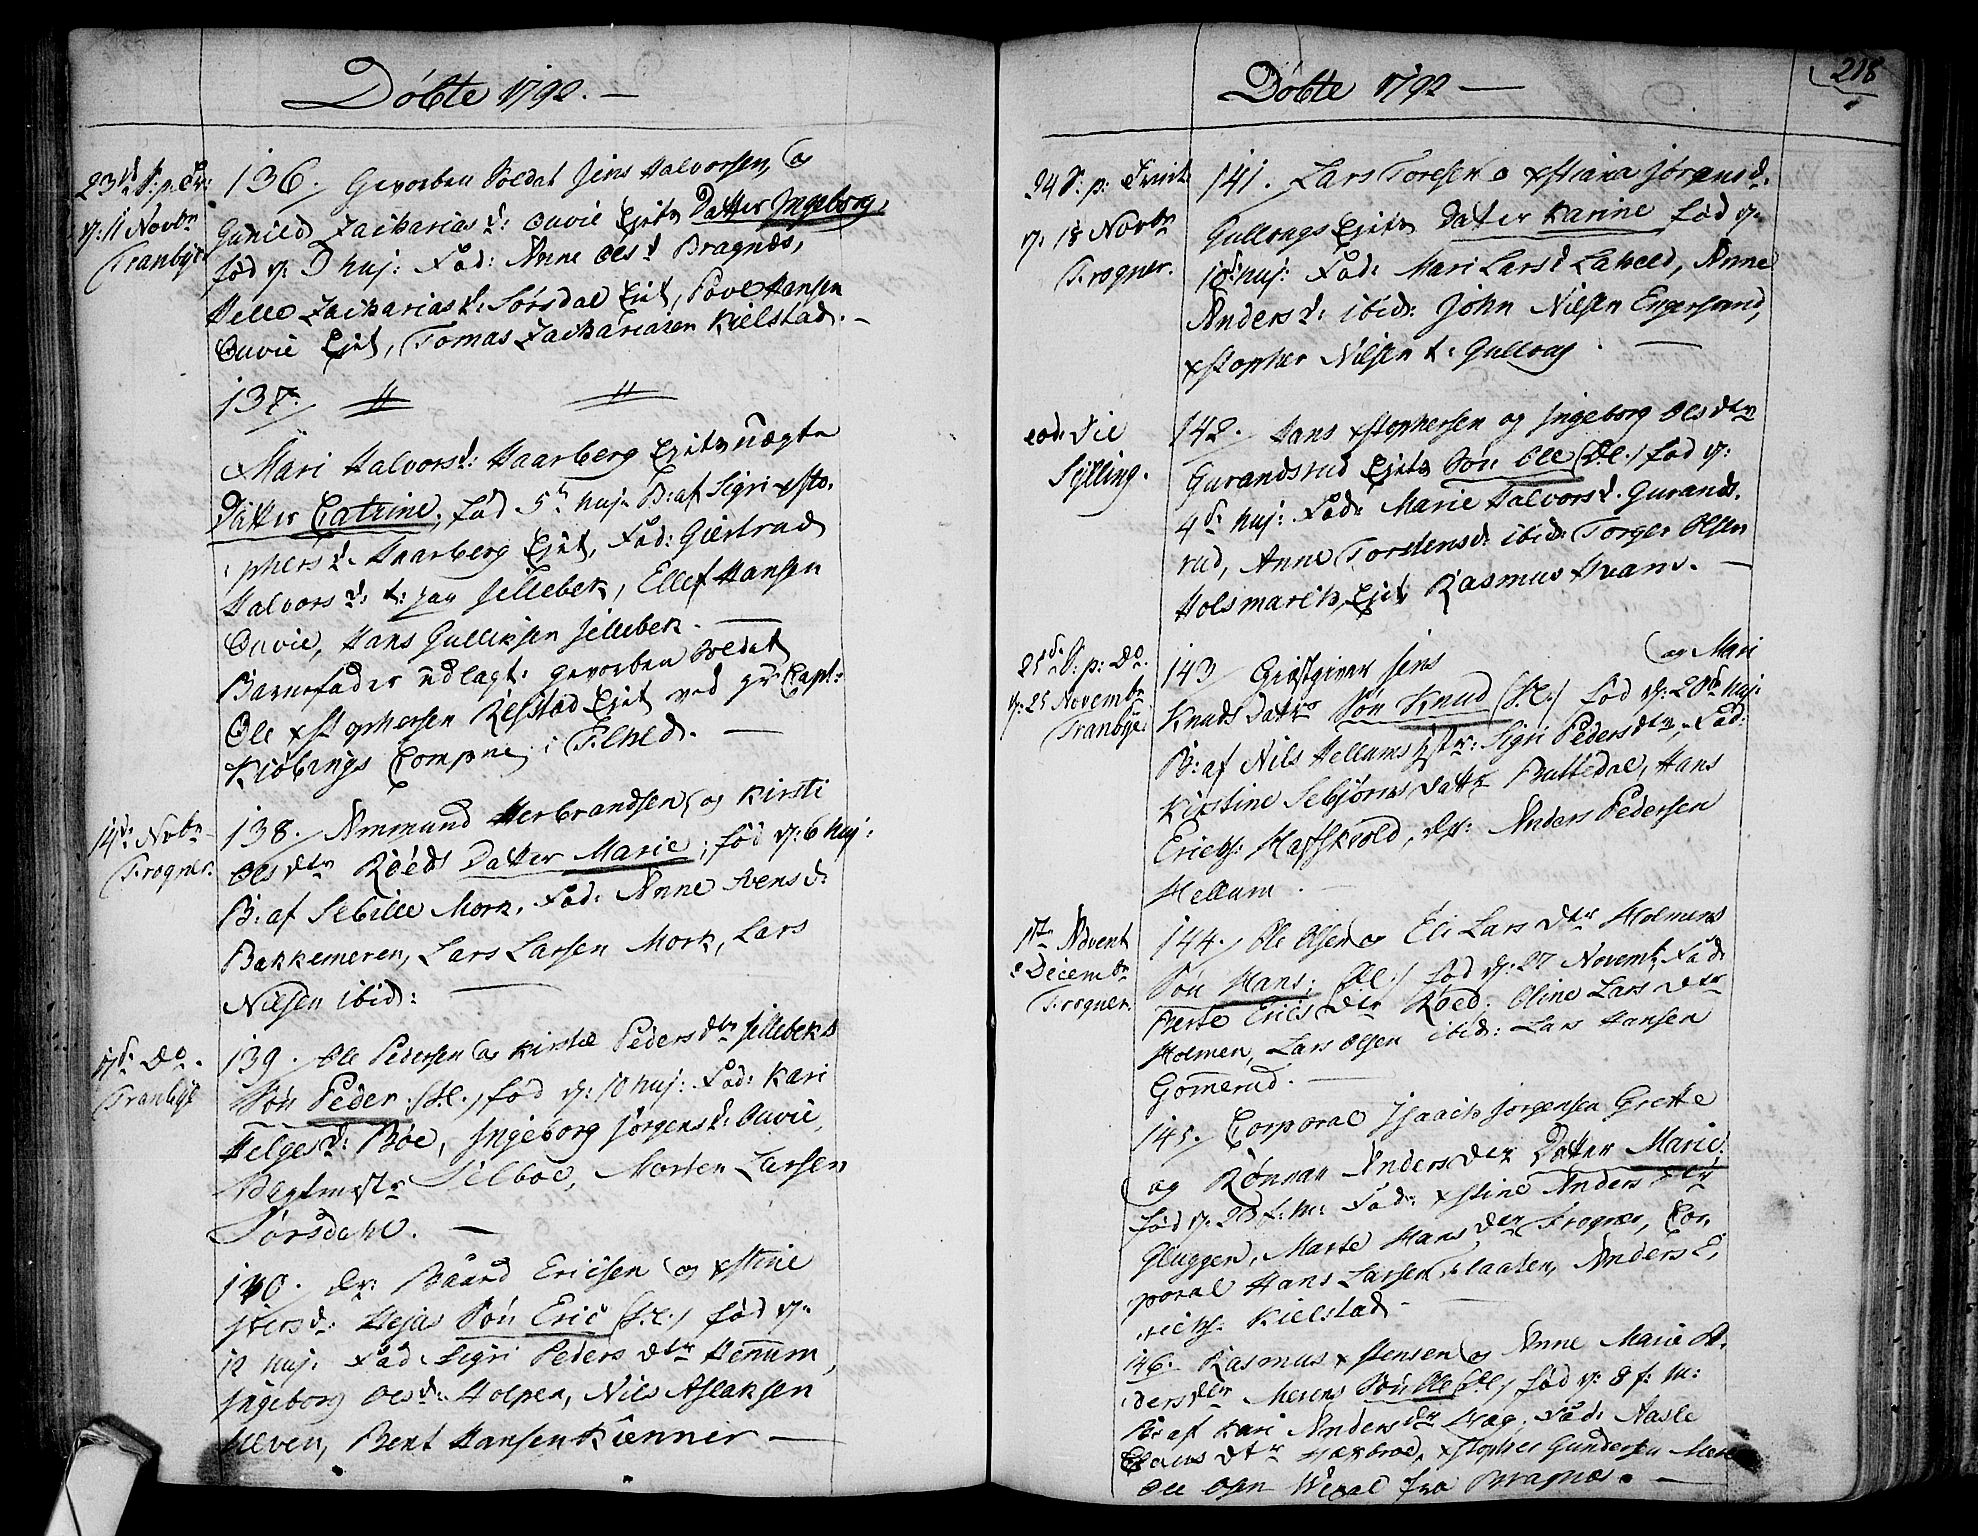 Döbte 1792. —
23d S: p: Tr:
d: 11 Novbr
Tranbye
136. Gevorben Soldat Jens Halvorsen, og
Gunild Zachariasd: Ouvie Ejets Datter Ingeborg,
föd d: D huj: Fad: Anne Olsd Bragnæs,
Helle Zachariasd: Sörsdal Ejet, Povel Hansen
Ouvie Ejet, Tomas Zachariasen Kielstad. —
137. // //
Mari Halvorsd: Haarberg Ejets uægte
Datter Catrine, föd 5te huj: B: af Sigri Xsto-
phersd. Haarberg Ejet, Fad: Giertrud
Halvorsd: t: paa Jellebek, Ellef Hansen
Ouvie, Hans Gulliksen Jellebek. —
Barnefader udlagt: gevorben Soldat
Ole Xstophersen Kielstad Ejet ved Capt:
Kiöbings Compnie i —
14d: Novbr
Frogner.
138. Ammund Herbrandsen og Kirsti
Olsdtr Röeds Datter Marie, föd d: 6 huj:
B: af Sebille Mork, Fad: Anne Ivensd:
Bakkemeren, Lars Larsen Mork, Lars
Nilsen ibid: —
17d Do.
Tranbye
139. Ole Pedersen og Kirstie Pedersdtr Jellebeks
Sön Peder (S.C.) föd d: 10 huj: Fad: Kari
Helgesd: Böe, Ingeborg Jörgensd: Ouvie,
Vagtmestr Silboe, Morten Larsen
Sörsdahl. —
140. Baard Ericsen og Xstine
Iversd: Hejas Sön Eric (S.C.) föd d:
12 huj: Fad: Sigri Pedersdtr Henum,
Ingeborg Olsd: Holpen, Nils Aslaksen
Ulven, Bent Hansen Kienner —
Döbte 1792 —
218
24 S: p: Trinit
d: 18 Novbr
Frogner.
141. Lars Toresen o Xstiana Jörgensd.
Gullougs Ejets Datter Karine föd d:
10d: huj: Fad: Mari Larsd Laheld, Anne
Andersd: ibid: John Nilsen Engersand,
Xstopher Nilsen t: Gulloug. —
eod: Die
Sylling.
142. Hans Xstophersen og Ingeborg Olsdtr
Gurandsrud Ejets Sön Ole (S.C.) föd d:
4d huj: Fad: Marie Halvorsd. Gurands-
rud, Anne Torstensd: ibid: Torger Olsen
Holsmark Ejet, Rasmus Svans. —
25d S: p: Do.
d: 25 Novembr
Tranbye.
143. Giestgiver Jens og Mari
Knuds Datrs Sön Knud (S.C.) föd d: 20d huj:
B: af Nils Hellums Hstr: Sigri Pedersdtr, Fad:
Kirstine Sebjörns Datr Battedal, Hans
Erichs: Haffskiold, Anders Pedersen
Hellum. —
1te Advent
2 Decembr
Frogner.
144. Ole Olsen og Eli Larsdtr Holmens
Sön Hans, (S.C.) föd d: 27 Novemb: Fad:
Berte Ericsdtr Röed, Oline Larsdtr
Holmen, Lars Olsen ibid: Lars Hansen
Gomerud. —
145. Corporal Isaach Jörgensen Grette
og Rönnau Andersdtr Datter Marie,
föd d: 23 f: m: Fad: Xstine Andersdtr
Gluggen, Marte Hansdtr Frogner, Cor-
poral Hans Larsen Flaaten, Anders E-
richs: Kielstad. —
146. Rasmus Xstensen og Anne Marie An-
dersdtr Merens Sön Ole (S.C.) föd d: 8 f: m:
B: af Kari Andersdtr Fad: Aasle
Claus dtr Xstopher Gundersen
Ole Olsen fra Bragnæs. —